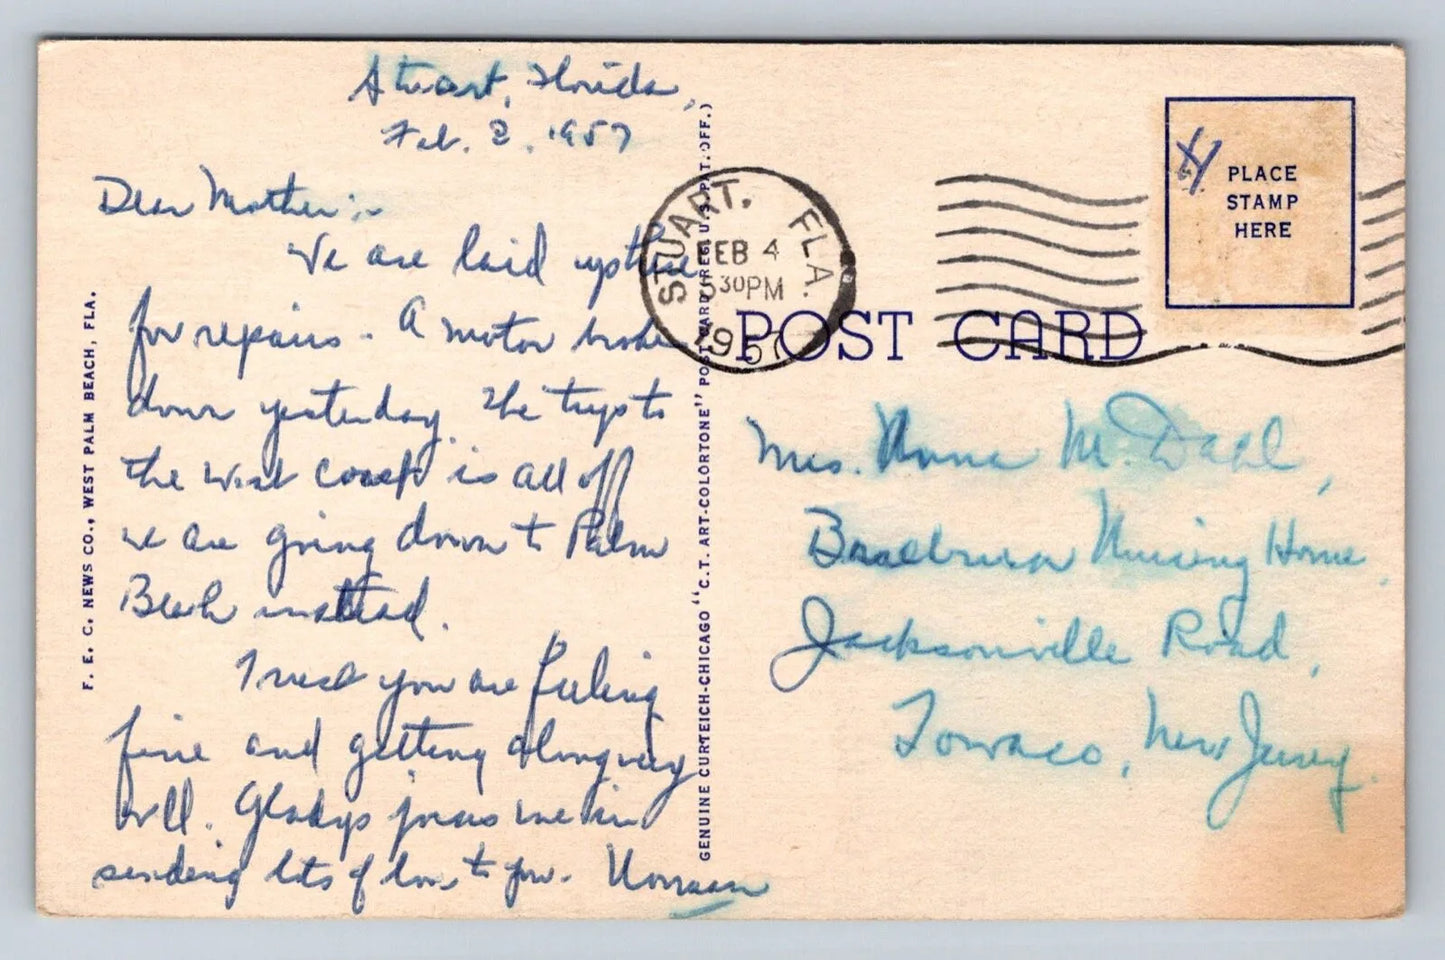 Stuart, Florida,
Feb. 2, 1957
Dear Mother:-
We are laid up here
for repairs - A motor broke
down yesterday. The trip to
the west coast is all off
we are going down to Palm
Beach instead.
Trust you are feeling
fine and getting along very
well. Gladys joins me in
sending lots of love to you. Norman
F. E. C. NEWS CO., WEST PALM BEACH, FLA.
GENUINE CURTEICH-CHICAGO "C.T. ART-COLORTONE" POST CARD (REG. U.S. PAT. OFF.)
STUART, FLA.
FEB 4
30PM
1957
POST CARD
PLACE
STAMP
HERE
Mrs. Anna M. Dahl,
Nursing Home,
Jacksonville Road,
Towaco, New Jersey.